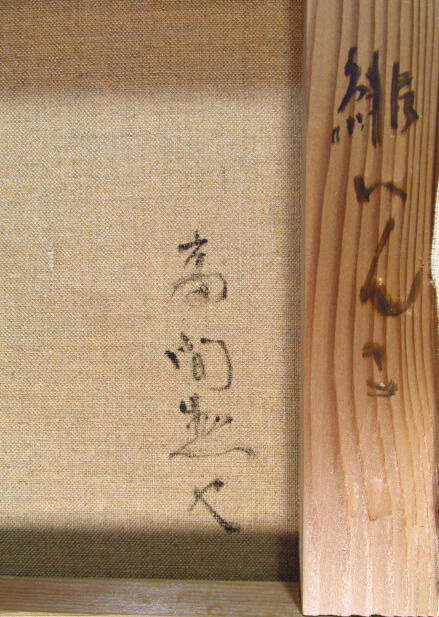 緋いんこ
高間惣七